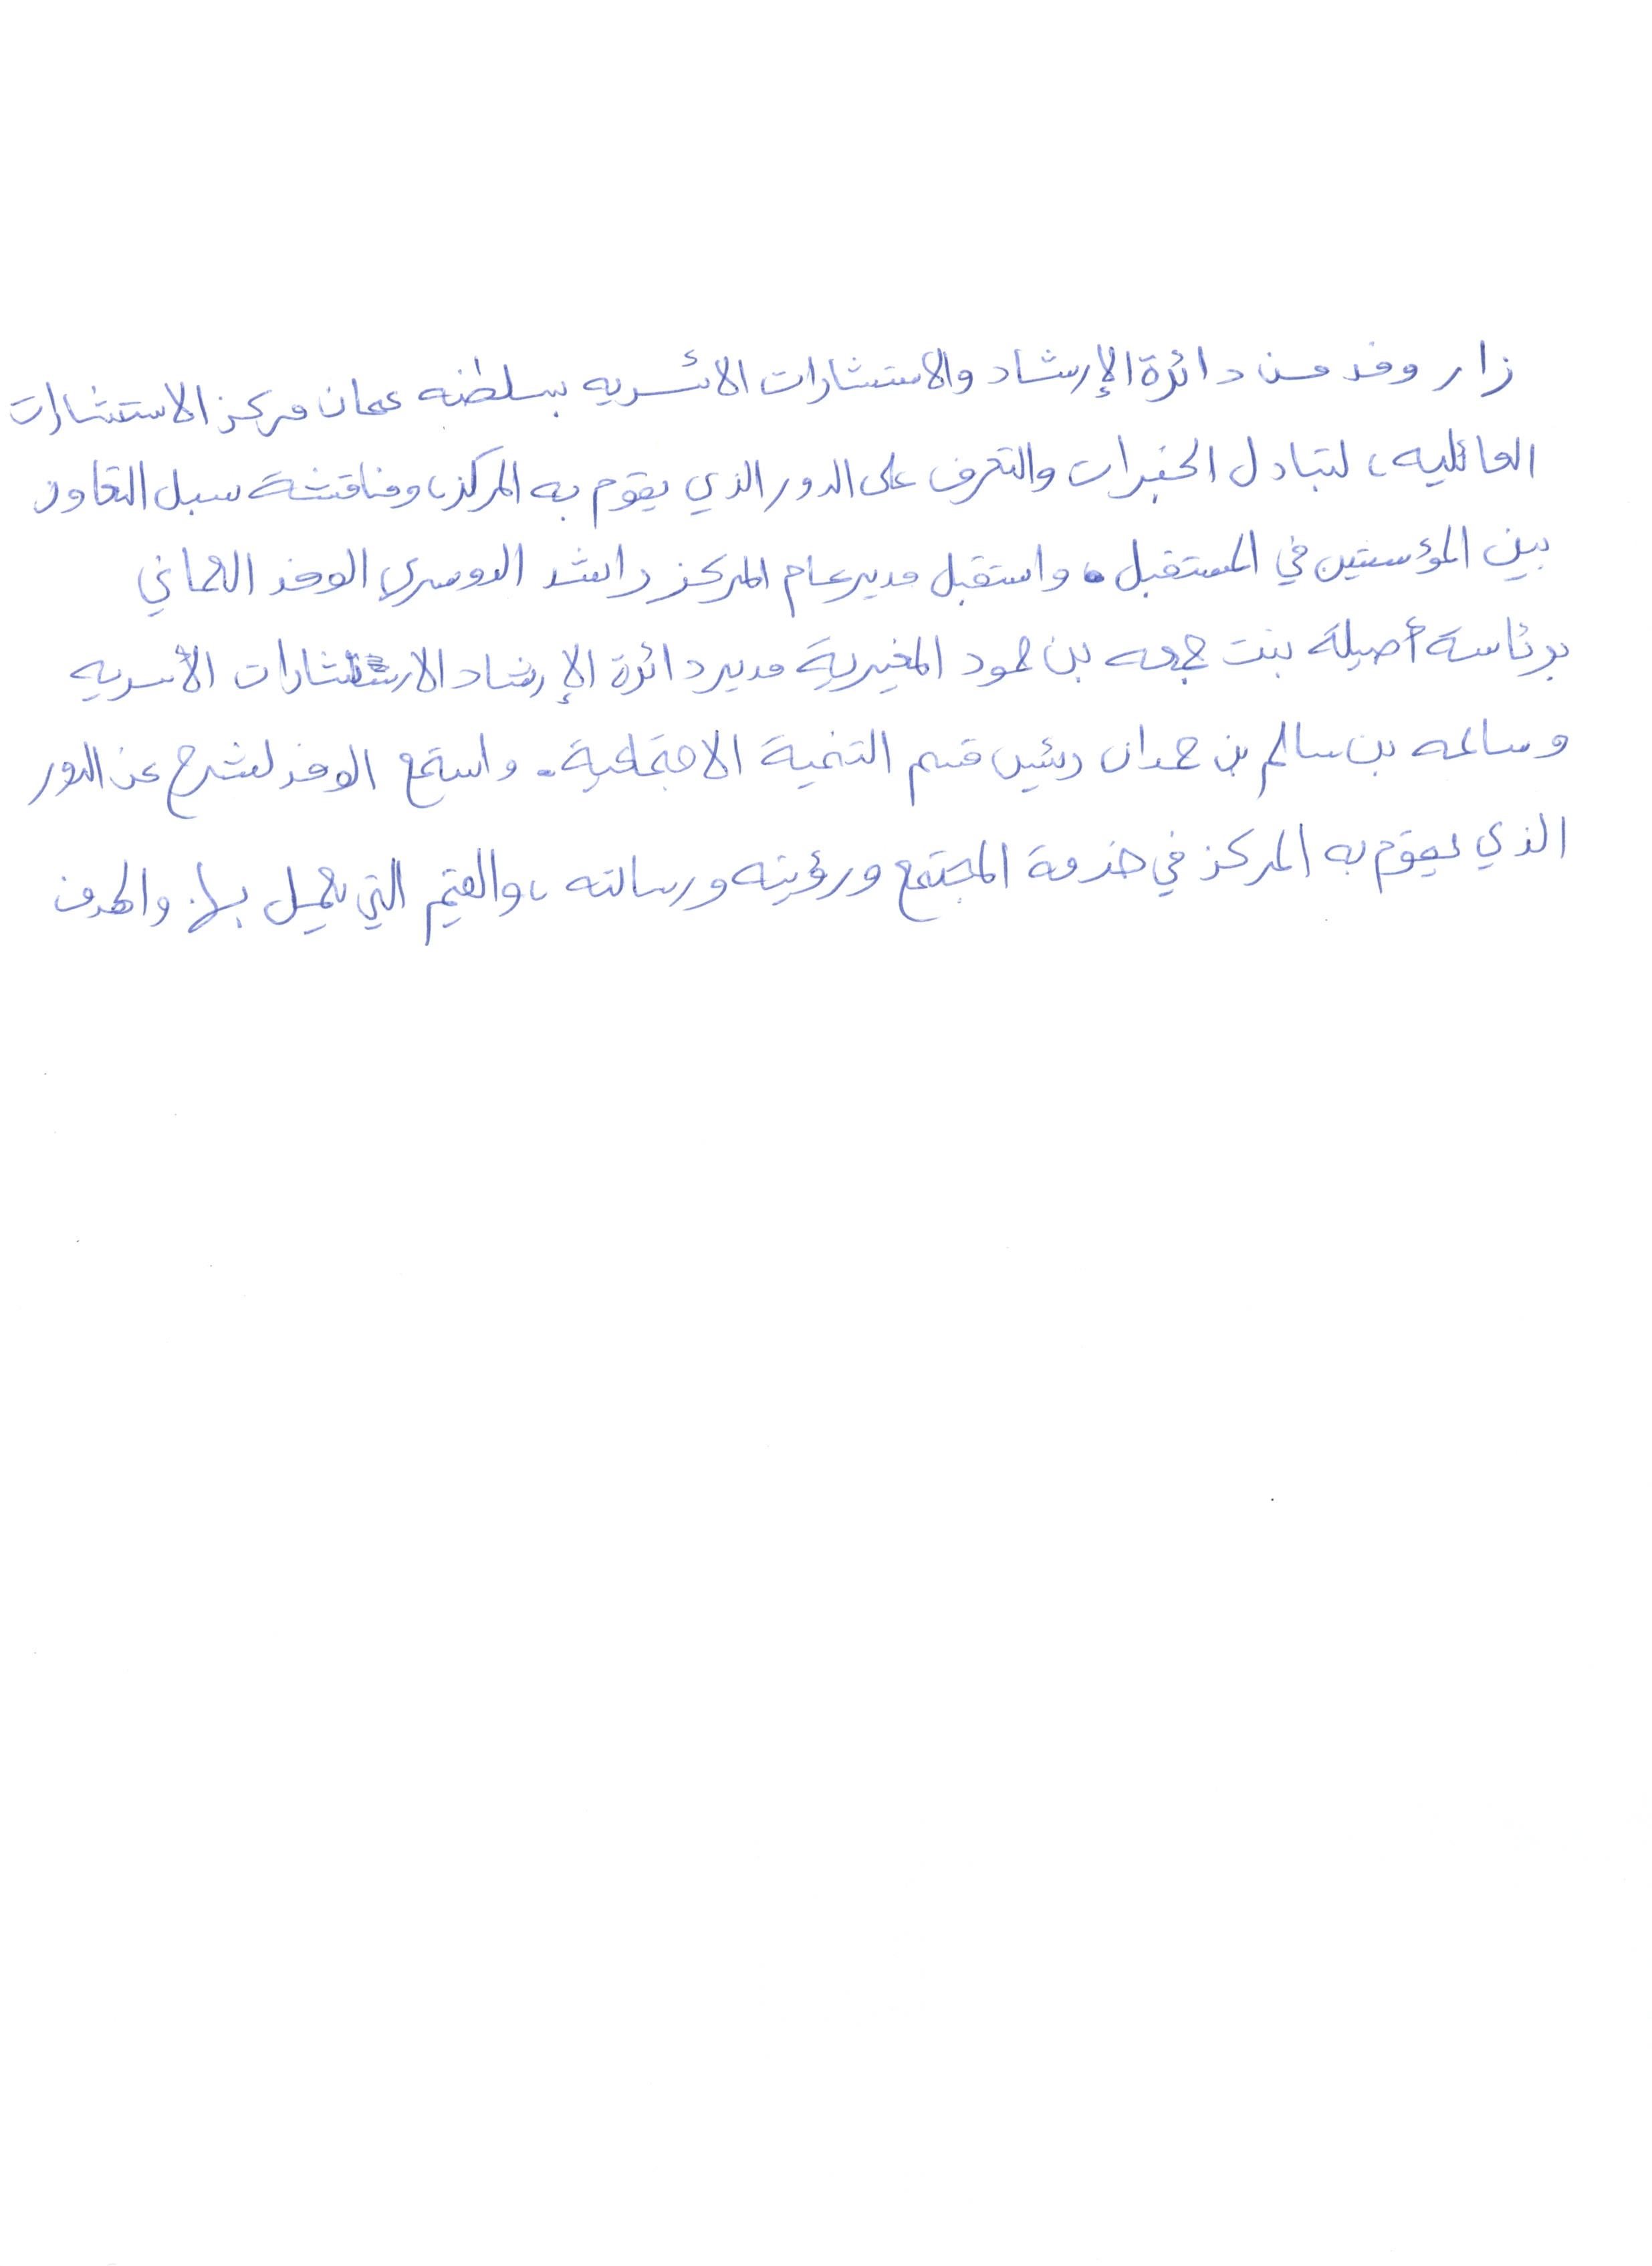 زار وفد من دائرة الإرشاد والاستشارات الأسريه بسلطنه عمان مركز الاستشارات
العائليه، لتبادل الخبرات والتعرف على الدور الذي يقوم به المركز، ومناقشة سبل التعاون
بين المؤسستين في المستقبل. واستقبل مدير عام المركز راشد الدوسري الوفد العماني
برئاسة أصيلة بنت جمعه بن حمود المغيرية مدير دائرة الإرشاد الاستشارات الأسريه
وسالمه بن سالم بن حمدان رئيس قسم التنمية الاجتماعية. واستمع الوفد لشرح عن الدور
الذي يقوم به المركز في خدمة المجتمع ورؤيته ورسالته، والقيم التي يعمل بها. والهدف